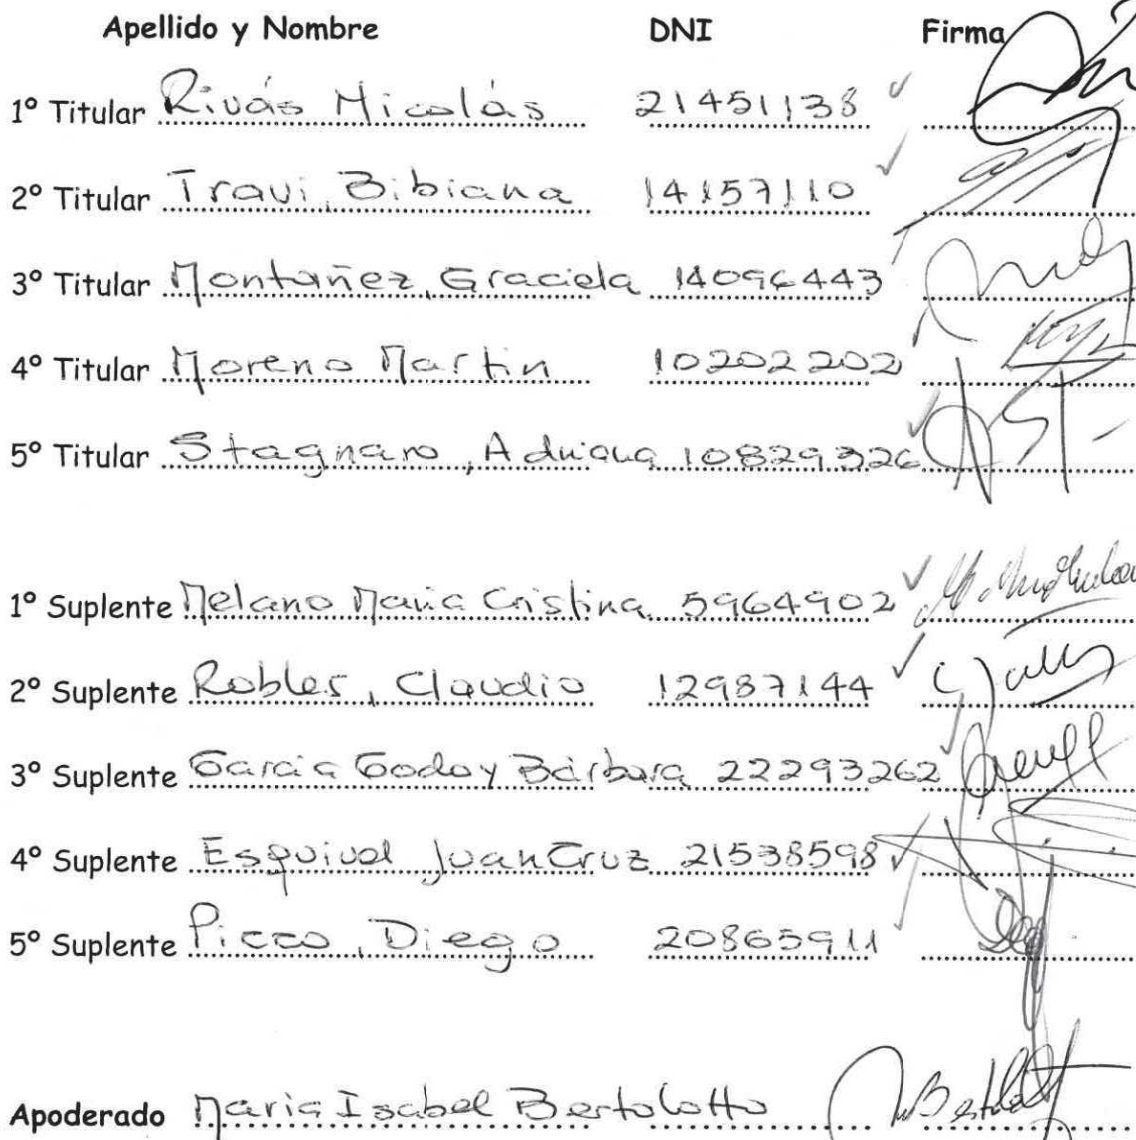 Apellido y Nombre DNI Firma
1º Titular Rivás Nicolás 21451138
2º Titular Travi, Bibiana 14157110
3º Titular Montañez, Graciela 14096443
4º Titular Moreno Martin 10202202
5º Titular Stagnaro, Adriana 10829326
1º Suplente Melano Maria Cristina 5964902
2º Suplente Robles, Claudio 12987144
3º Suplente Garcia Godoy Bárbara 22293262
4º Suplente Esquivel Juan Cruz 21538598
5º Suplente Picco, Diego 20865911
Apoderado Maria Isabel Bertolotto